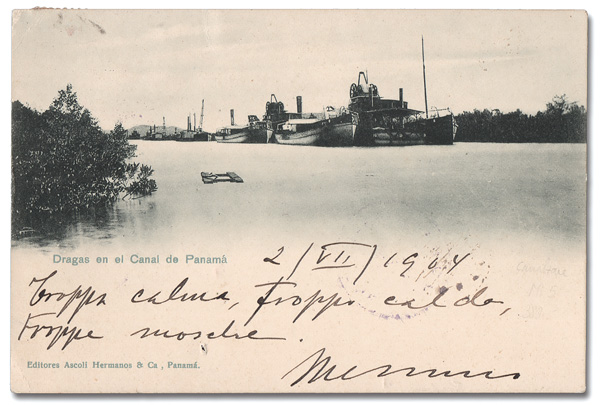 Dragas en el Canal de Panamá
2/VII/1904
Troppa calma, troppo caldo,
troppe mosche.
Editores Ascoli Hermanos & Ca, Panamá.